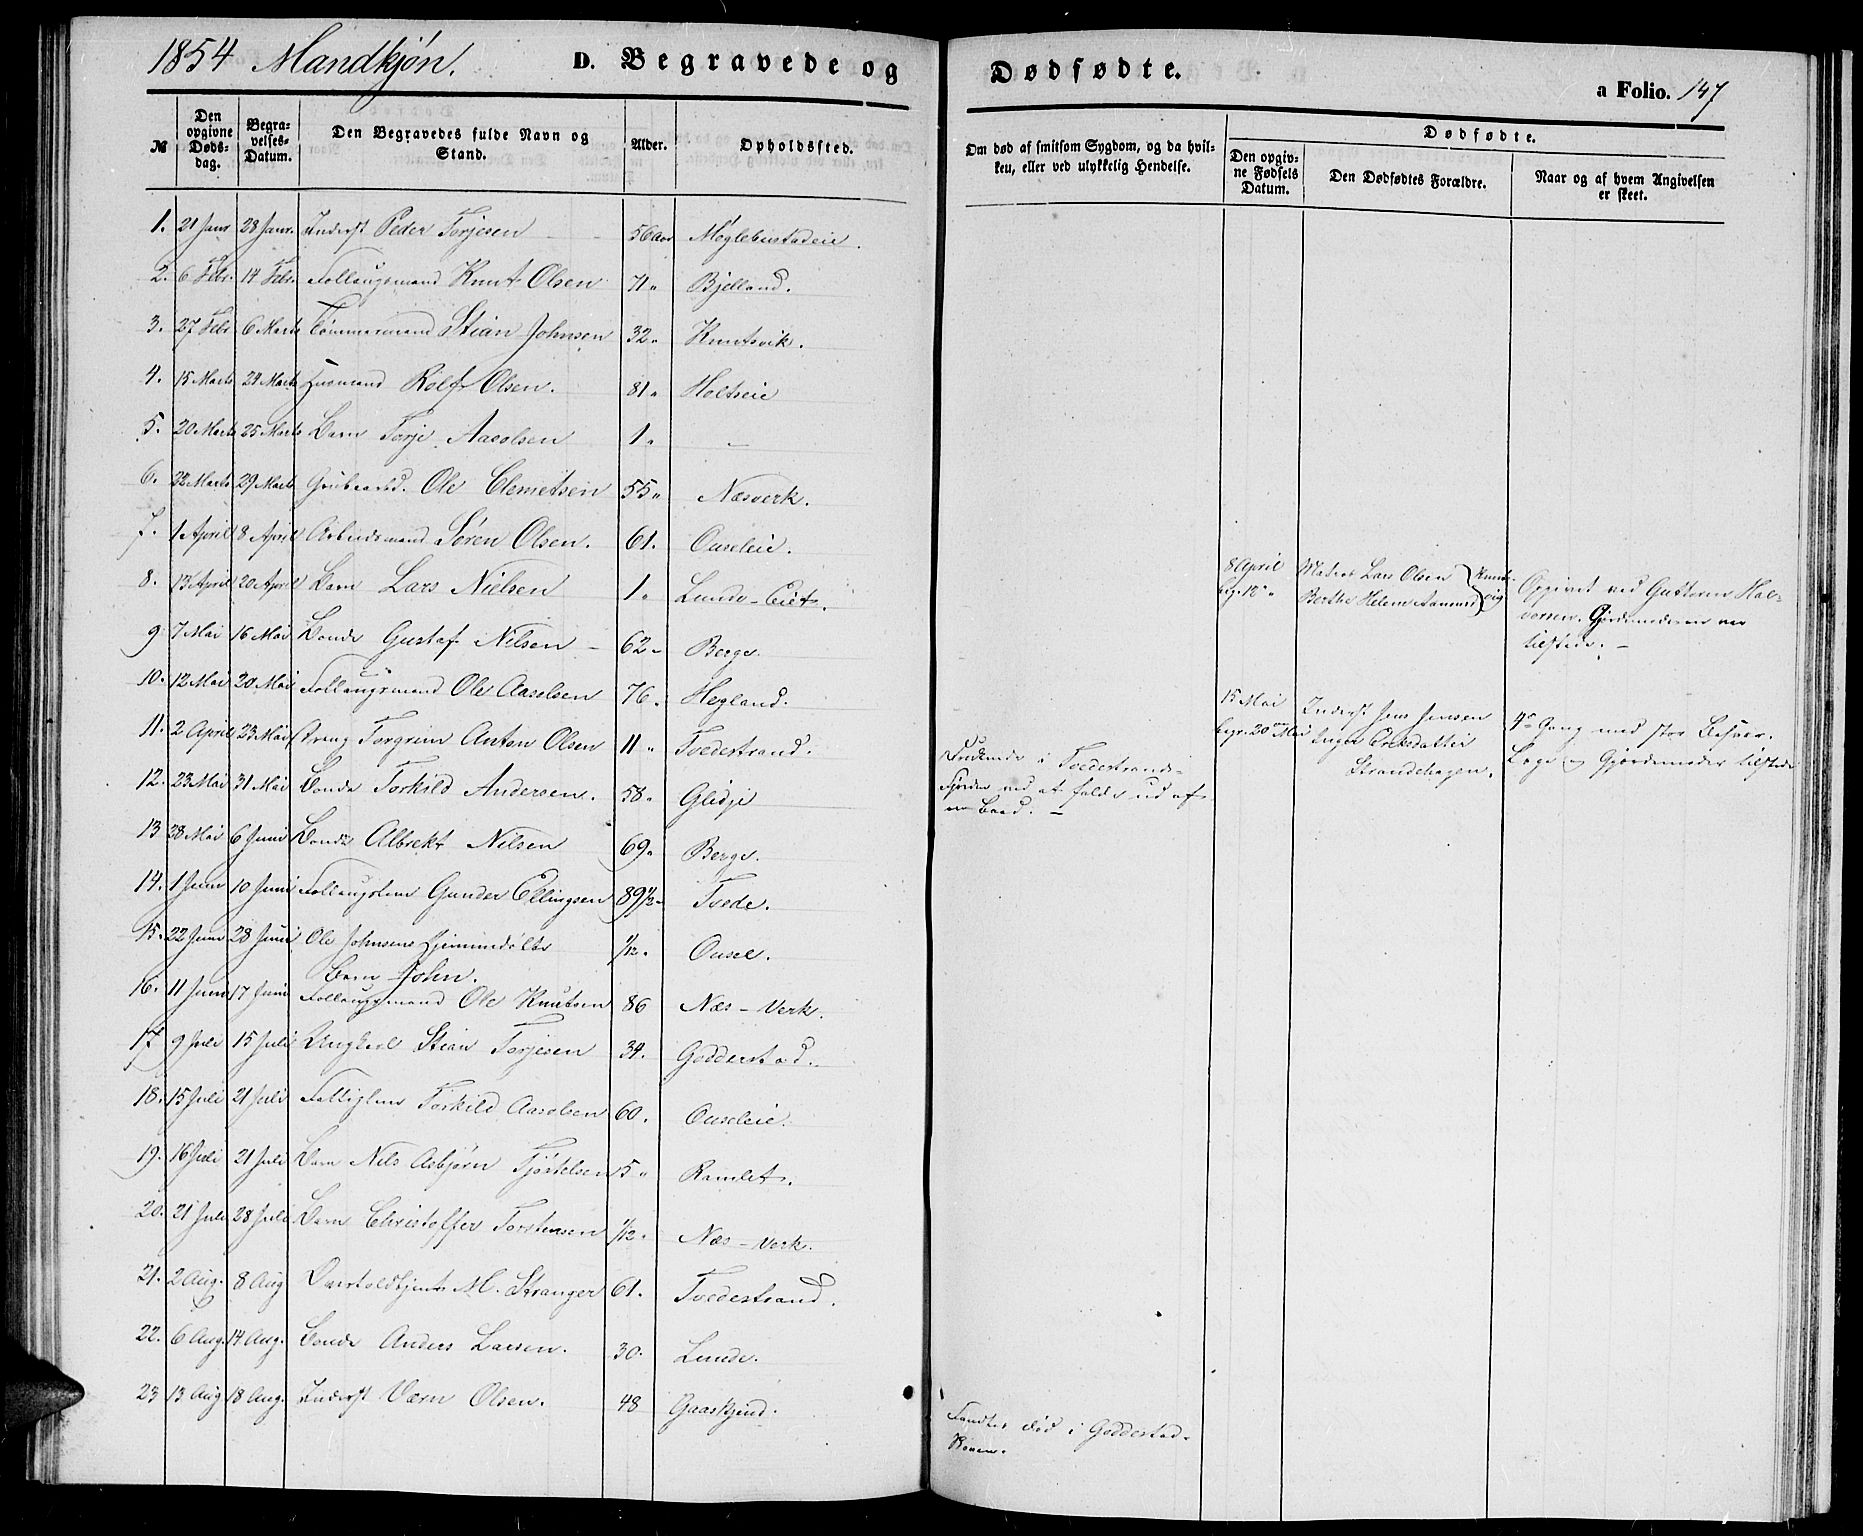 1854 Mandkjøn. D. Begravede og Dødfødte. a Folio. 147
№
Den opgivne Døds-dag.
Begra-velses-Datum.
Den Begravedes fulde Navn og Stand.
Alder.
Opholdssted.
Om død af smitsom Sygdom, og da hvil-ken, eller ved ulykkelig Hendelse.
Dødfødte.
Den opgiv-ne Fødsels Datum.
Den Dødfødtes Forældre.
Naar og af hvem Angivelsen er skeet.
1. 21 Janr 28 Janr. Inderst Peder Torjesen 56 Aar Møglebustadeie.
2. 6 Febr. 14 Febr. Follaugsmand Knut Olsen 71 " Bjelland.
3. 27 Febr 6 Marts Tømmermand Stian Johnsen 32 " Knutsvik.
4. 15 Marts 24 Marts Huusmand Rolf Olsen. 81 " Holtseie
5. 20 Marts 25 Marts Barn Torje Aasolsen 1 " –
6. 22 Marts 29 Marts Grubearbd. Ole Clemetsen 55 " Næsverk.
7. 1 April 8 April Arbeidsmand Søren Olsen. 61. Ouseleie.
8. 13 April 20 April Barn Lars Nielsen 1 " Lunde-Eiet.
8 April
beg. 12 "
Matros Lars Olsen
Berthe Helene Aamunds
Knuts-
vig
Opgivet ved Guttorm Hal-
vorsen. Gjordemoderen var
tilstede. –
9. 7 Mai 16 Mai Bonde Gustaf Nilsen – 62 " Berge.
10. 12 Mai 20 Mai Follaugsmand Ole Aasolsen 76. Hegland.
11. 2 April 23 Mai Dreng Torgrim Anton Olsen 11 " Tvedestrand.
Druknede i Tvedestrands-
Fjorden ved at falde ud af
en Baad. –
15 Mai
begr. 20 Mai
Inderst Jens Jensen
Inger Eriksdatter
Strandehagen.
4de Gang med stor Besvær.
Læge og Gjordemoder tilstede
12. 23 Mai 31 Mai Bonde Torkild Andersen. 58 " Glidje
13 28 Mai 6 Juni Bonde Albrekt Nilsen 69 " Berge.
14. 1 Juni 10 Juni Follaugslem Gunder Ellingsen 89 1/2 " Tvede.
15. 22 Juni 28 Juni Ole Johnsens hjemmedøbte 1/12. Ousel.
Barn John.
16. 11 Juni 17 Juni Follaugsmand Ole Knutsen 86 Næs-Verk.
17 9 Juli 15 Juli Ungkarl Stian Torjesen 34. Godderstad.
18. 15 Juli 21 Juli Fattiglem Torkild Aasolsen 60. Ouseleie.
19. 16 Juli 21 Juli Barn Nils Asbjørn Tjøstelsen 5 " Ramlet.
20. 21 Juli 28 Juli Barn Christoffer Torstensen 1/12. Næs-Verk.
21. 2 Aug. 8 Aug Overtoldbetjent M. Stranger 61. Tvedestrand.
22. 6 Aug. 14 Aug. Bonde Anders Larsen. 30. Lunde.
23 13 Aug 18 Aug. Inderst Værn Olsen. 48 Gaaskjend.
Fandtes død i Godderstad-